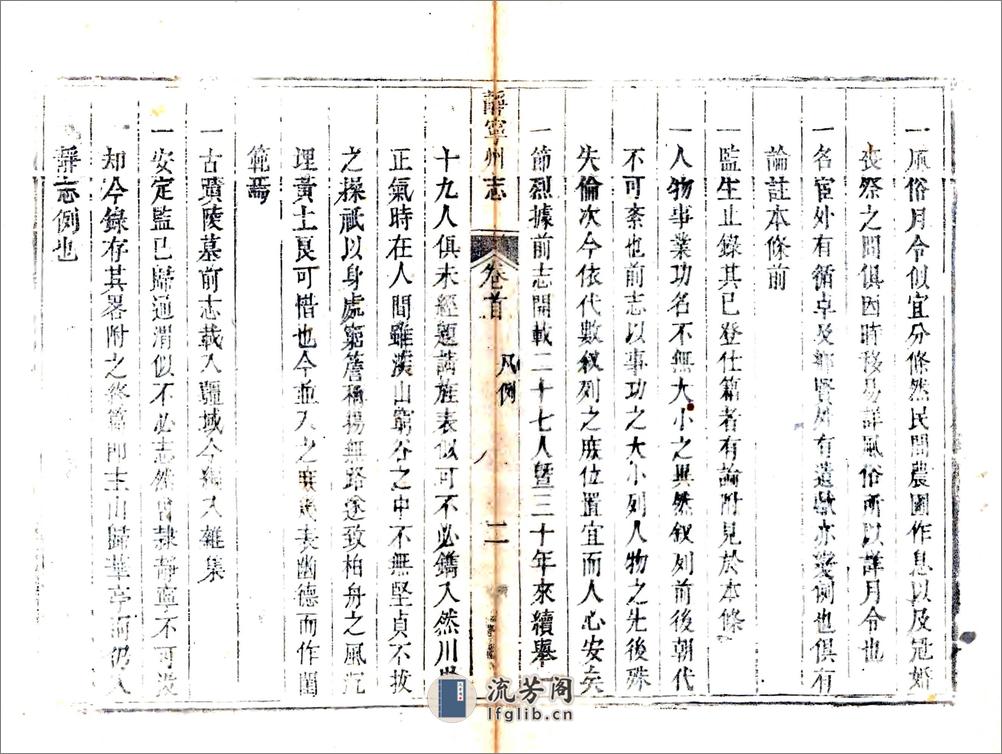 一風俗月令似宜分條然民間農圃作息以及冠婚
喪祭之間俱因時移易詳風俗所以詳月令也
一名宦外有循卓及鄉賢外有遺獻亦變例也俱有
論註本條前
一監生止錄其已登仕籍者有論附見於本條
一人物事業功名不無大小之異然敘列前後朝代
不可紊也前志以事功之大小列人物之先後殊
失倫次今依代數敘列之庶位置宜而人心安矣
一節烈據前志開載二十七人暨三十年來續舉
靜寧州志
卷首
凡例
八
二
十九人俱未經題請旌表似可不必鐫入然川嶽
正氣時在人間雖漢山窮谷之中不無堅貞不拔
之操祇以身處窮簷稱揚無路遂致柏舟之風沉
埋黃土良可惜也今並入之庶幾表幽德而作閨
範焉
一古蹟陵墓前志載入疆域今編入雜集
一安定監已歸通渭似不必志然曾隸靜寧不可沒
却今錄存其畧附之終篇即主山歸華亭而仍入
靜志例也
流芳阁
lfglib.cn